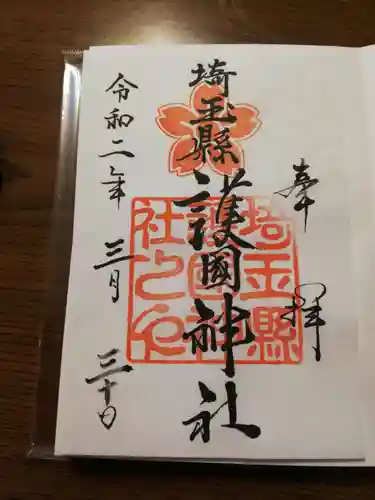 奉拝
埼玉縣護國神社
令和二年三月三十日
埼玉縣
護国神
社之印